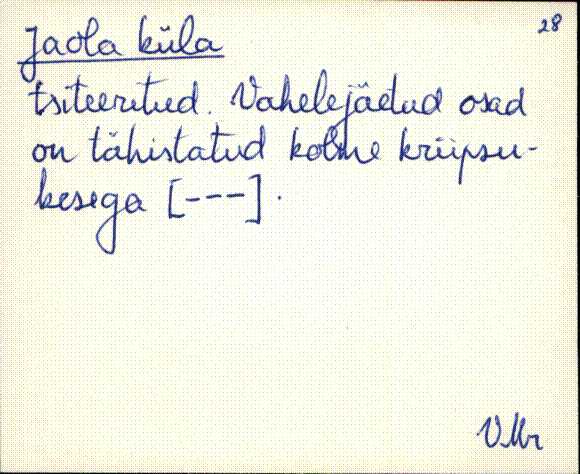 28
Jaola küla
tsiteeritud. Vahelejäetud osad
on tähistatud kolme kriipsu-
kesega [---].
VMr